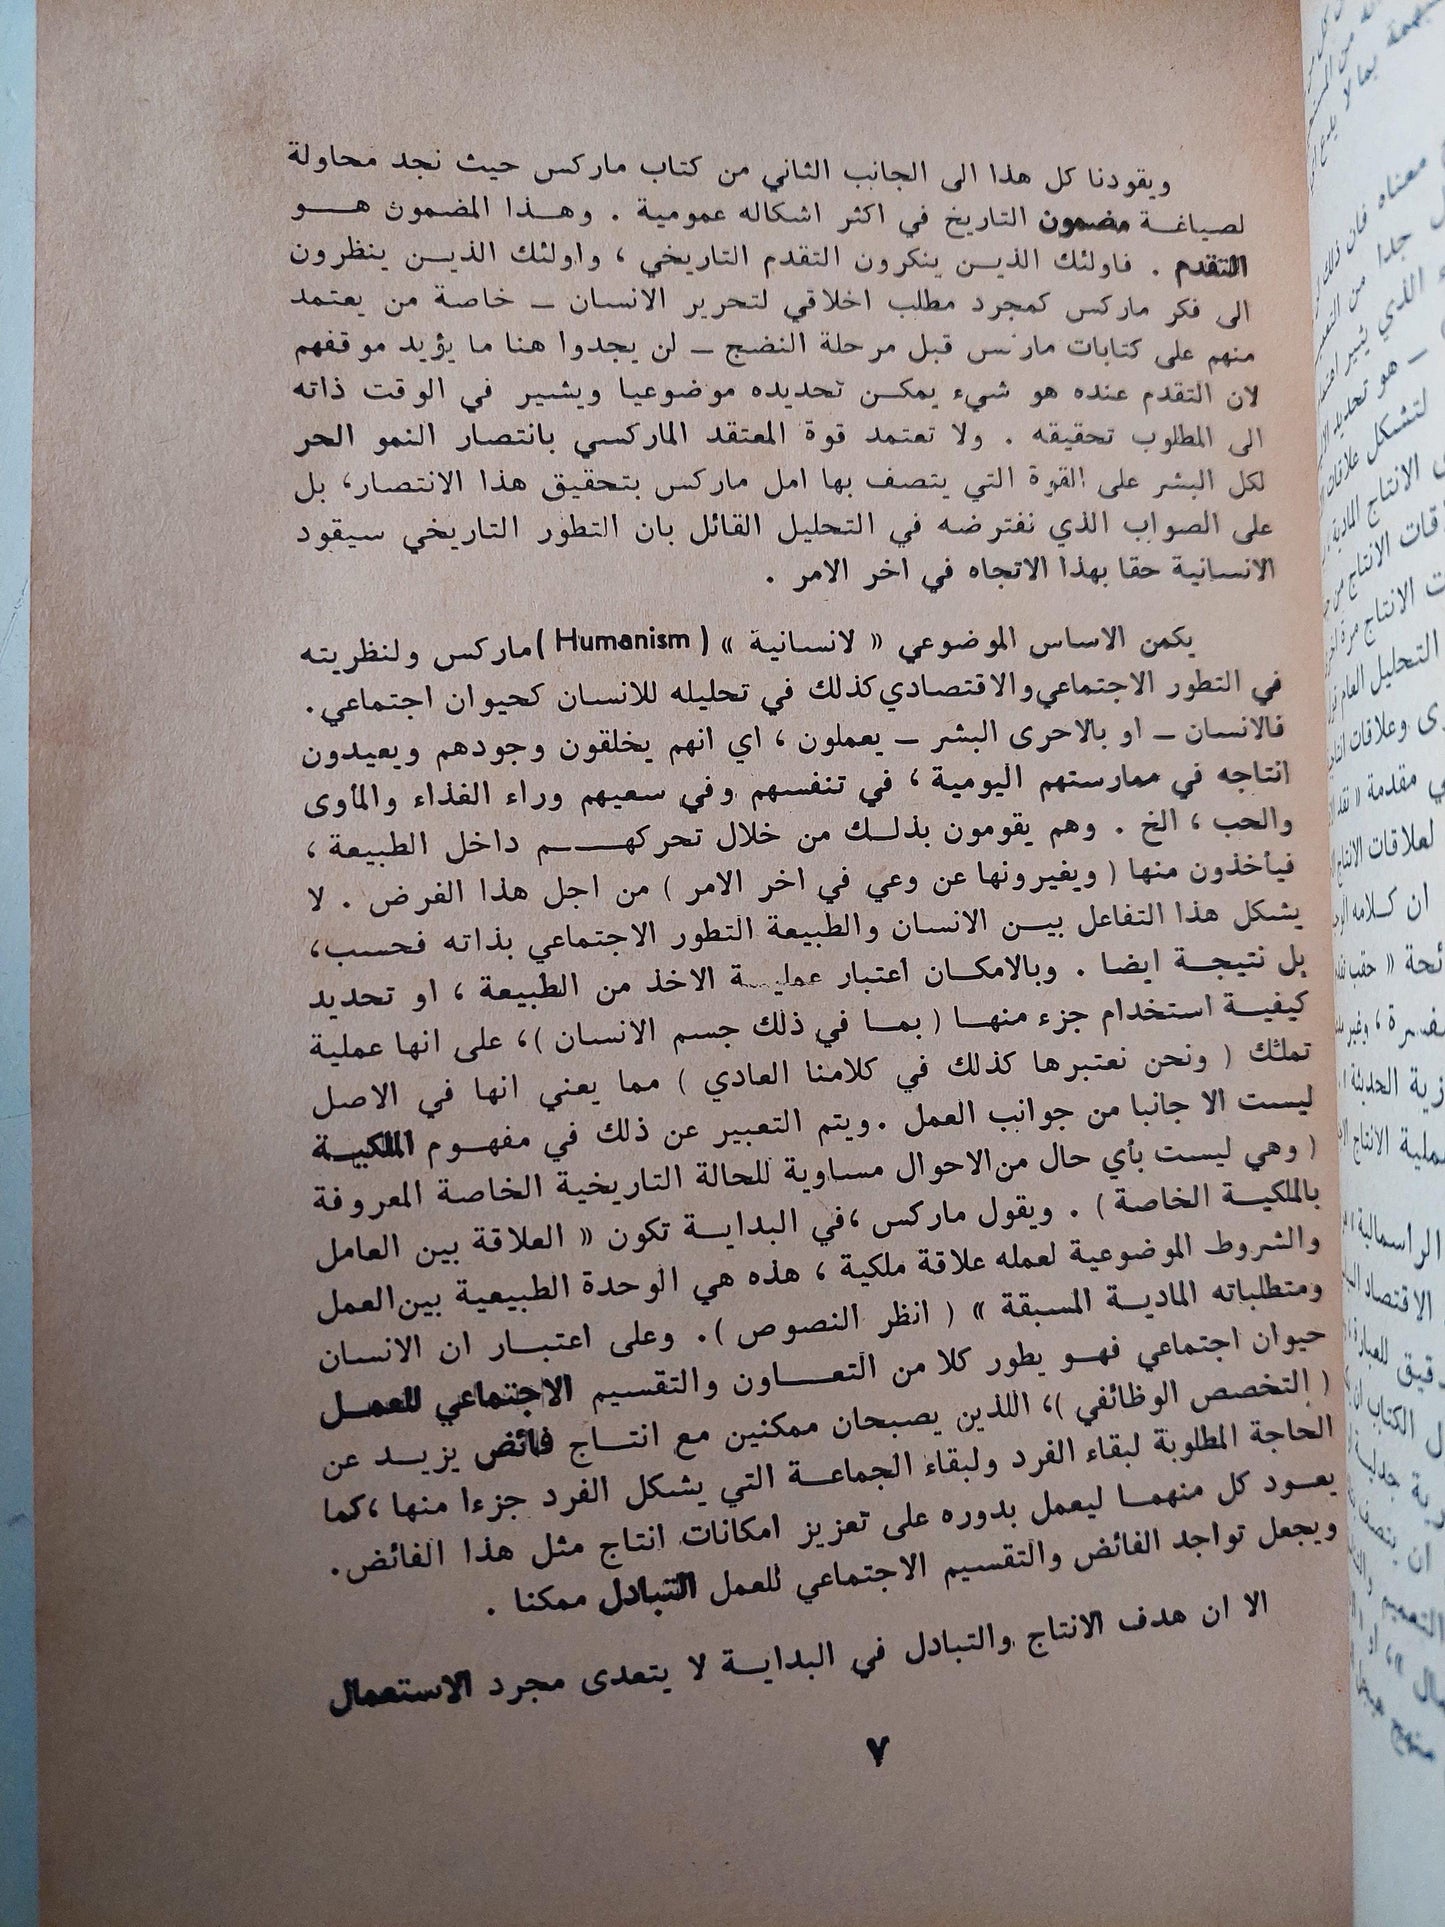 ويقودنا كل هذا الى الجانب الثاني من كتاب ماركس حيث نجد محاولة
لصياغة مضمون التاريخ في اكثر اشكاله عمومية . وهذا المضمون هو
التقدم . فاولئك الذين ينكرون التقدم التاريخي ، واولئك الذين ينظرون
الى فكر ماركس كمجرد مطلب اخلاقي لتحرير الانسان ــ خاصة من يعتمد
منهم على كتابات ماركس قبل مرحلة النضج ــ لن يجدوا هنا ما يؤيد موقفهم
لان التقدم عنده هو شيء يمكن تحديده موضوعيا ويشير في الوقت ذاته
الى المطلوب تحقيقه . ولا تعتمد قوة المعتقد الماركسي بانتصار النمو الحر
لكل البشر على القوة التي يتصف بها امل ماركس بتحقيق هذا الانتصار، بل
على الصواب الذي نفترضه في التحليل القائل بان التطور التاريخي سيقود
الانسانية حقا بهذا الاتجاه في اخر الامر .
يكمن الاساس الموضوعي « لانسانية » ( Humanism ) ماركس ولنظريته
في التطور الاجتماعي والاقتصادي كذلك في تحليله للانسان كحيوان اجتماعي.
فالانسان ــ او بالاحرى البشر ــ يعملون ، اي انهم يخلقون وجودهم ويعيدون
انتاجه في ممارستهم اليومية ، في تنفسهم وفي سعيهم وراء الغذاء والمأوى
والحب ، الخ . وهم يقومون بذلك من خلال تحركهم داخل الطبيعة ،
فيأخذون منها ( ويغيرونها عن وعي في اخر الامر ) من اجل هذا الغرض . لا
يشكل هذا التفاعل بين الانسان والطبيعة التطور الاجتماعي بذاته فحسب،
بل نتيجة ايضا . وبالامكان اعتبار عملية الاخذ من الطبيعة ، او تحديد
كيفية استخدام جزء منها ( بما في ذلك جسم الانسان )، على انها عملية
تملك ( ونحن نعتبرها كذلك في كلامنا العادي ) مما يعني انها في الاصل
ليست الا جانبا من جوانب العمل . ويتم التعبير عن ذلك في مفهوم الملكية
( وهي ليست بأي حال من الاحوال مساوية للحالة التاريخية الخاصة المعروفة
بالملكية الخاصة ) . ويقول ماركس ،في البداية تكون « العلاقة بين العامل
والشروط الموضوعية لعمله علاقة ملكية ، هذه هي الوحدة الطبيعية بين العمل
ومتطلباته المادية المسبقة » ( انظر النصوص ). وعلى اعتبار ان الانسان
حيوان اجتماعي فهو يطور كلا من التعاون والتقسيم الاجتماعي للعمل
( التخصص الوظائفي )، اللذين يصبحان ممكنين مع انتاج فائض يزيد عن
الحاجة المطلوبة لبقاء الفرد ولبقاء الجماعة التي يشكل الفرد جزءا منها ،كما
يعود كل منهما ليعمل بدوره على تعزيز امكانات انتاج مثل هذا الفائض.
ويجعل تواجد الفائض والتقسيم الاجتماعي للعمل التبادل ممكنا .
الا ان هدف الانتاج والتبادل في البداية لا يتعدى مجرد الاستعمال
٧